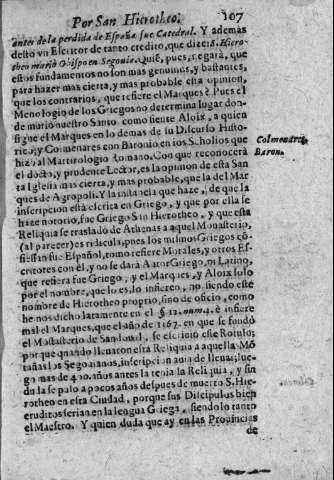 Por San Hierotheo. 107
antes de la perdida de España fue Catedral. Y ademàs
desto un Escritor de tanto credito, que dize: S. Hiero-
theo muriò Obispo en Segovia: Quiẽ, pues, negarà, que
estos fundamentos no son mas genuinos, y bastantes,
para hazer mas cierta, y mas probable esta opinion,
que los contrarios, que refiere el Marquès? Pues el
Menologio de los Griegos no determina lugar don-
de muriò nuestro Santo, como siente Aloix, a quien
sigue el Marques en lo demas de su Discurso Histo-
rico; y Colmenares con Baronio en los Scholios que
hizo al Martirologio Romano. Con que reconocerà
el docto, y prudente Lector, es la opinion de esta San
ta Iglesia mas cierta, y mas probable, que la del Mar
ques de Agropoli. Y la instancia que haze, de que la
inscripcion està escrita en Griego, y que por ella se
haze notorio, fue Griego San Hierotheo, y que esta
Reliquia se trasladò de Athenas a aquel Monasterio,
(al parecer) es ridicula, pues los mismos Griegos cõ-
fiessan fue Español, como refiere Morales, y otros Es-
critores con èl, y no se darà Autor Griego, ni Latino,
que refiera fue Griego; y el Marques, y Aloix solo
por el nombre, que lo es, lo infieren, no siendo este
nombre de Hierotheo proprio, sino de oficio, como
he mos dicho latamente en el § 12. num. 4. è infiere
mal el Marques, que el año de 1367. en que se fundò
el Monasterio de Sandoual, se escriuiò este Rotulo;
porque quando lleuaron esta Reliquia a aquella Mõ-
tañas los Segouianos, inscripcion auia de lleuar, lue-
go mas de 400. años antes la tenia la Reliquia, y sin
duda se palo a pocos años despues de muerto S. Hie-
rotheo en esta Ciudad, porque sus Discipulos bien
eruditos serian en la lengua Griega, siendolo tanto
el Maestro. Y quien duda que ay en las Prouincias
de
Colmenares
Baron.